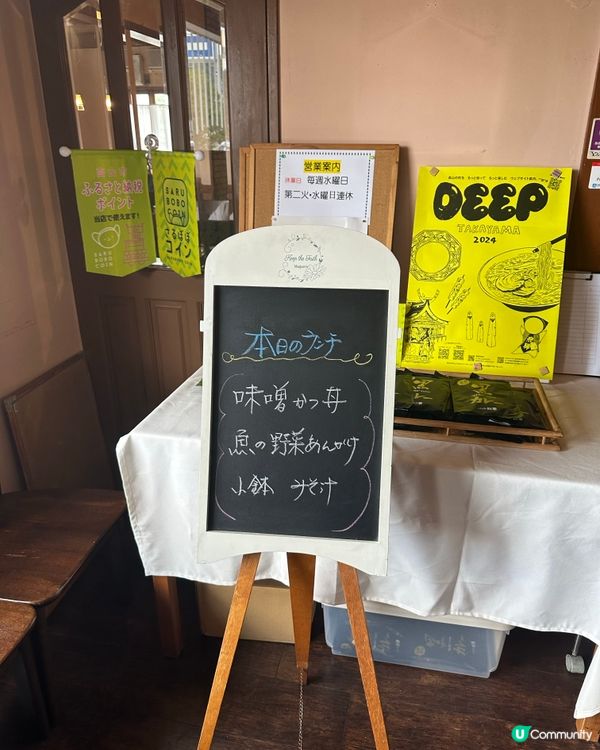 ふるさと納税
ポイント
当店で使えます!
SARU
BOBO
COIN
SARU
BOBO
COIN
さるぼぼ
コイン
営業案内
休業日 毎週水曜日
第二火・水曜日連休
DEEP
TAKAYAMA
2024
Keep the Faith
本日のランチ
味噌かつ丼
魚の野菜あんかけ
小鉢 みそ汁
U Community